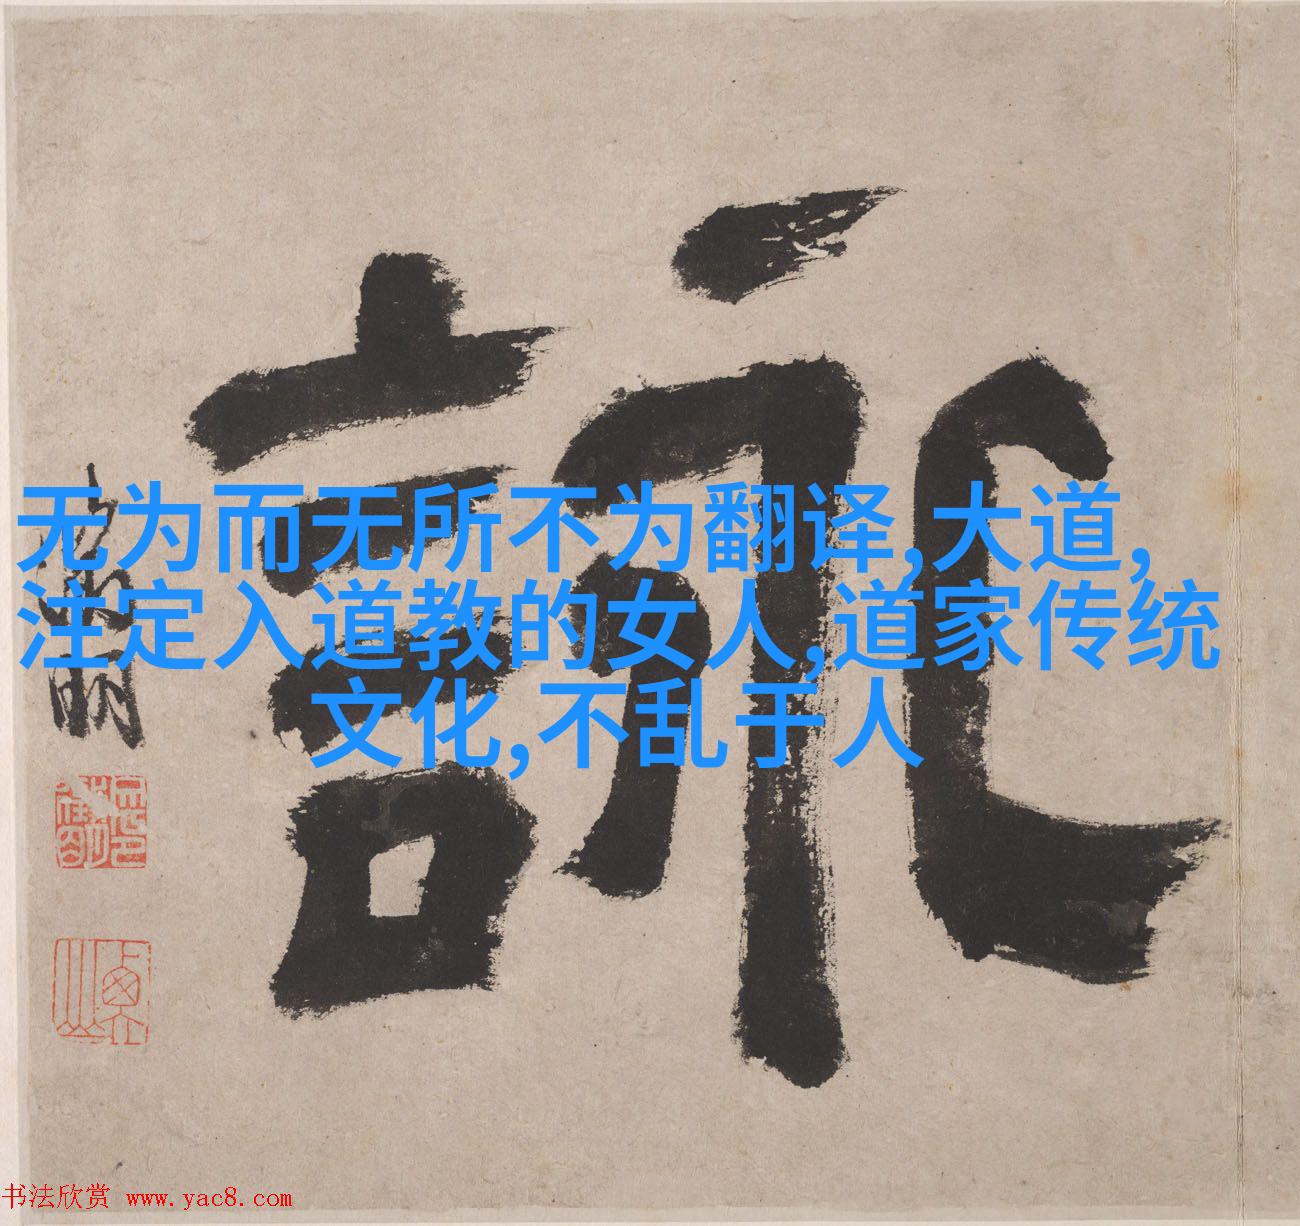 詠
无为而无所不为翻译,大道,
注定入道教的女人,道家传统
文化,不乱于人
书法欣赏 www.yac8.com